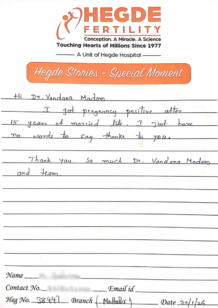 HEGDE
FERTILITY
Conception. A Miracle. A Science
Touching Hearts of Millions Since 1977
A Unit of Hegde Hospital
Hegde Stories - Special Moment
Hi Dr. Vandana Madam
I got pregnancy positive after
15 years of married life. I just have
no words to say thanks to you.
Thank you so much Dr. Vandana Madam
and team.
Name
Contact No. Email id
Heg No. 38447 Branch (Malkajgiri) Date